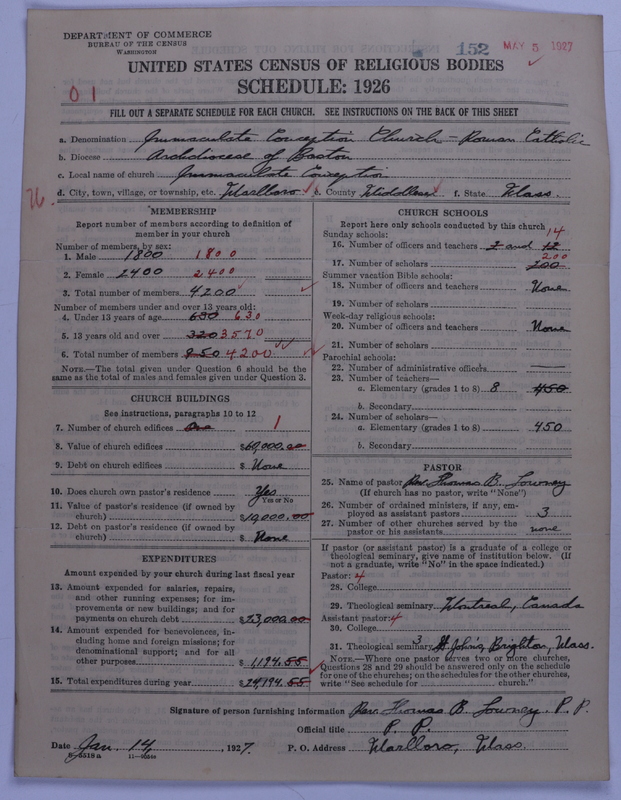 DEPARTMENT OF COMMERCE
BUREAU OF THE CENSUS
WASHINGTON
152 MAY 5 1927
UNITED STATES CENSUS OF RELIGIOUS BODIES
SCHEDULE: 1926
01
FILL OUT A SEPARATE SCHEDULE FOR EACH CHURCH. SEE INSTRUCTIONS ON THE BACK OF THIS SHEET
a. Denomination Immaculate Conception Church - Roman Catholic
b. Diocese Archdiocese of Boston
c. Local name of church Immaculate Conception
d. City, town, village, or township, etc. Marlboro e. County Middlesex f. State Mass.
MEMBERSHIP
Report number of members according to definition of
member in your church
Number of members, by sex:
1. Male 1800 1800
2. Female 2400 2400
3. Total number of members 4200
Number of members under and over 13 years old:
4. Under 13 years of age 630 630
5. 13 years old and over 320 3570
6. Total number of members 950 4200
NOTE.—The total given under Question 6 should be
same as the total of males and females given under Question 3.
CHURCH BUILDINGS
See instructions, paragraphs 10 to 12
7. Number of church edifices One 1
8. Value of church edifices $60,000.00
9. Debt on church edifices $ None
10. Does church own pastor's residence Yes
Yes or No
11. Value of pastor's residence (if owned by
church) $10,000.00
12. Debt on pastor's residence (if owned by
church) $ None
EXPENDITURES
Amount expended by your church during last fiscal year
13. Amount expended for salaries, repairs,
and other running expenses; for im-
provements or new buildings; and for
payments on church debt $23,000.00
14. Amount expended for benevolences, in-
cluding home and foreign missions; for
denominational support; and for all
other purposes 1,194.55
15. Total expenditures during year $24,194.55
CHURCH SCHOOLS
Report here only schools conducted by this church
Sunday schools:
14
16. Number of officers and teachers 2 and 12
200
17. Number of scholars 200
Summer vacation Bible schools:
18. Number of officers and teachers None
19. Number of scholars
Week-day religious schools:
20. Number of officers and teachers None
21. Number of scholars
Parochial schools:
22. Number of administrative officers
23. Number of teachers—
a. Elementary (grades 1 to 8) 8 450
b. Secondary
24. Number of scholars—
a. Elementary (grades 1 to 8) 450
b. Secondary
PASTOR
25. Name of pastor Rev. Thomas B. Lowney
(If church has no pastor, write "None")
26. Number of ordained ministers, if any, em-
ployed as assistant pastors 3
27. Number of other churches served by the
pastor or his assistants none
If pastor (or assistant pastor) is a graduate of a college or
theological seminary, give name of institution below. (If
not a graduate, write "No" in the space indicated.)
Pastor: 4
28. College
29. Theological seminary Montreal, Canada
Assistant pastor: 4
30. College
31. Theological seminary 3 St. John's, Brighton, Mass.
NOTE.—Where one pastor serves two or more churches,
Questions 28 and 29 should be answered only on the schedule
for one of the churches; on the schedules for the other churches,
write "See schedule for church."
Signature of person furnishing information Rev. Thomas B. Lowney, P. P.
Official title P. P.
Date Jan. 14, 1927. P. O. Address Marlboro, Mass.